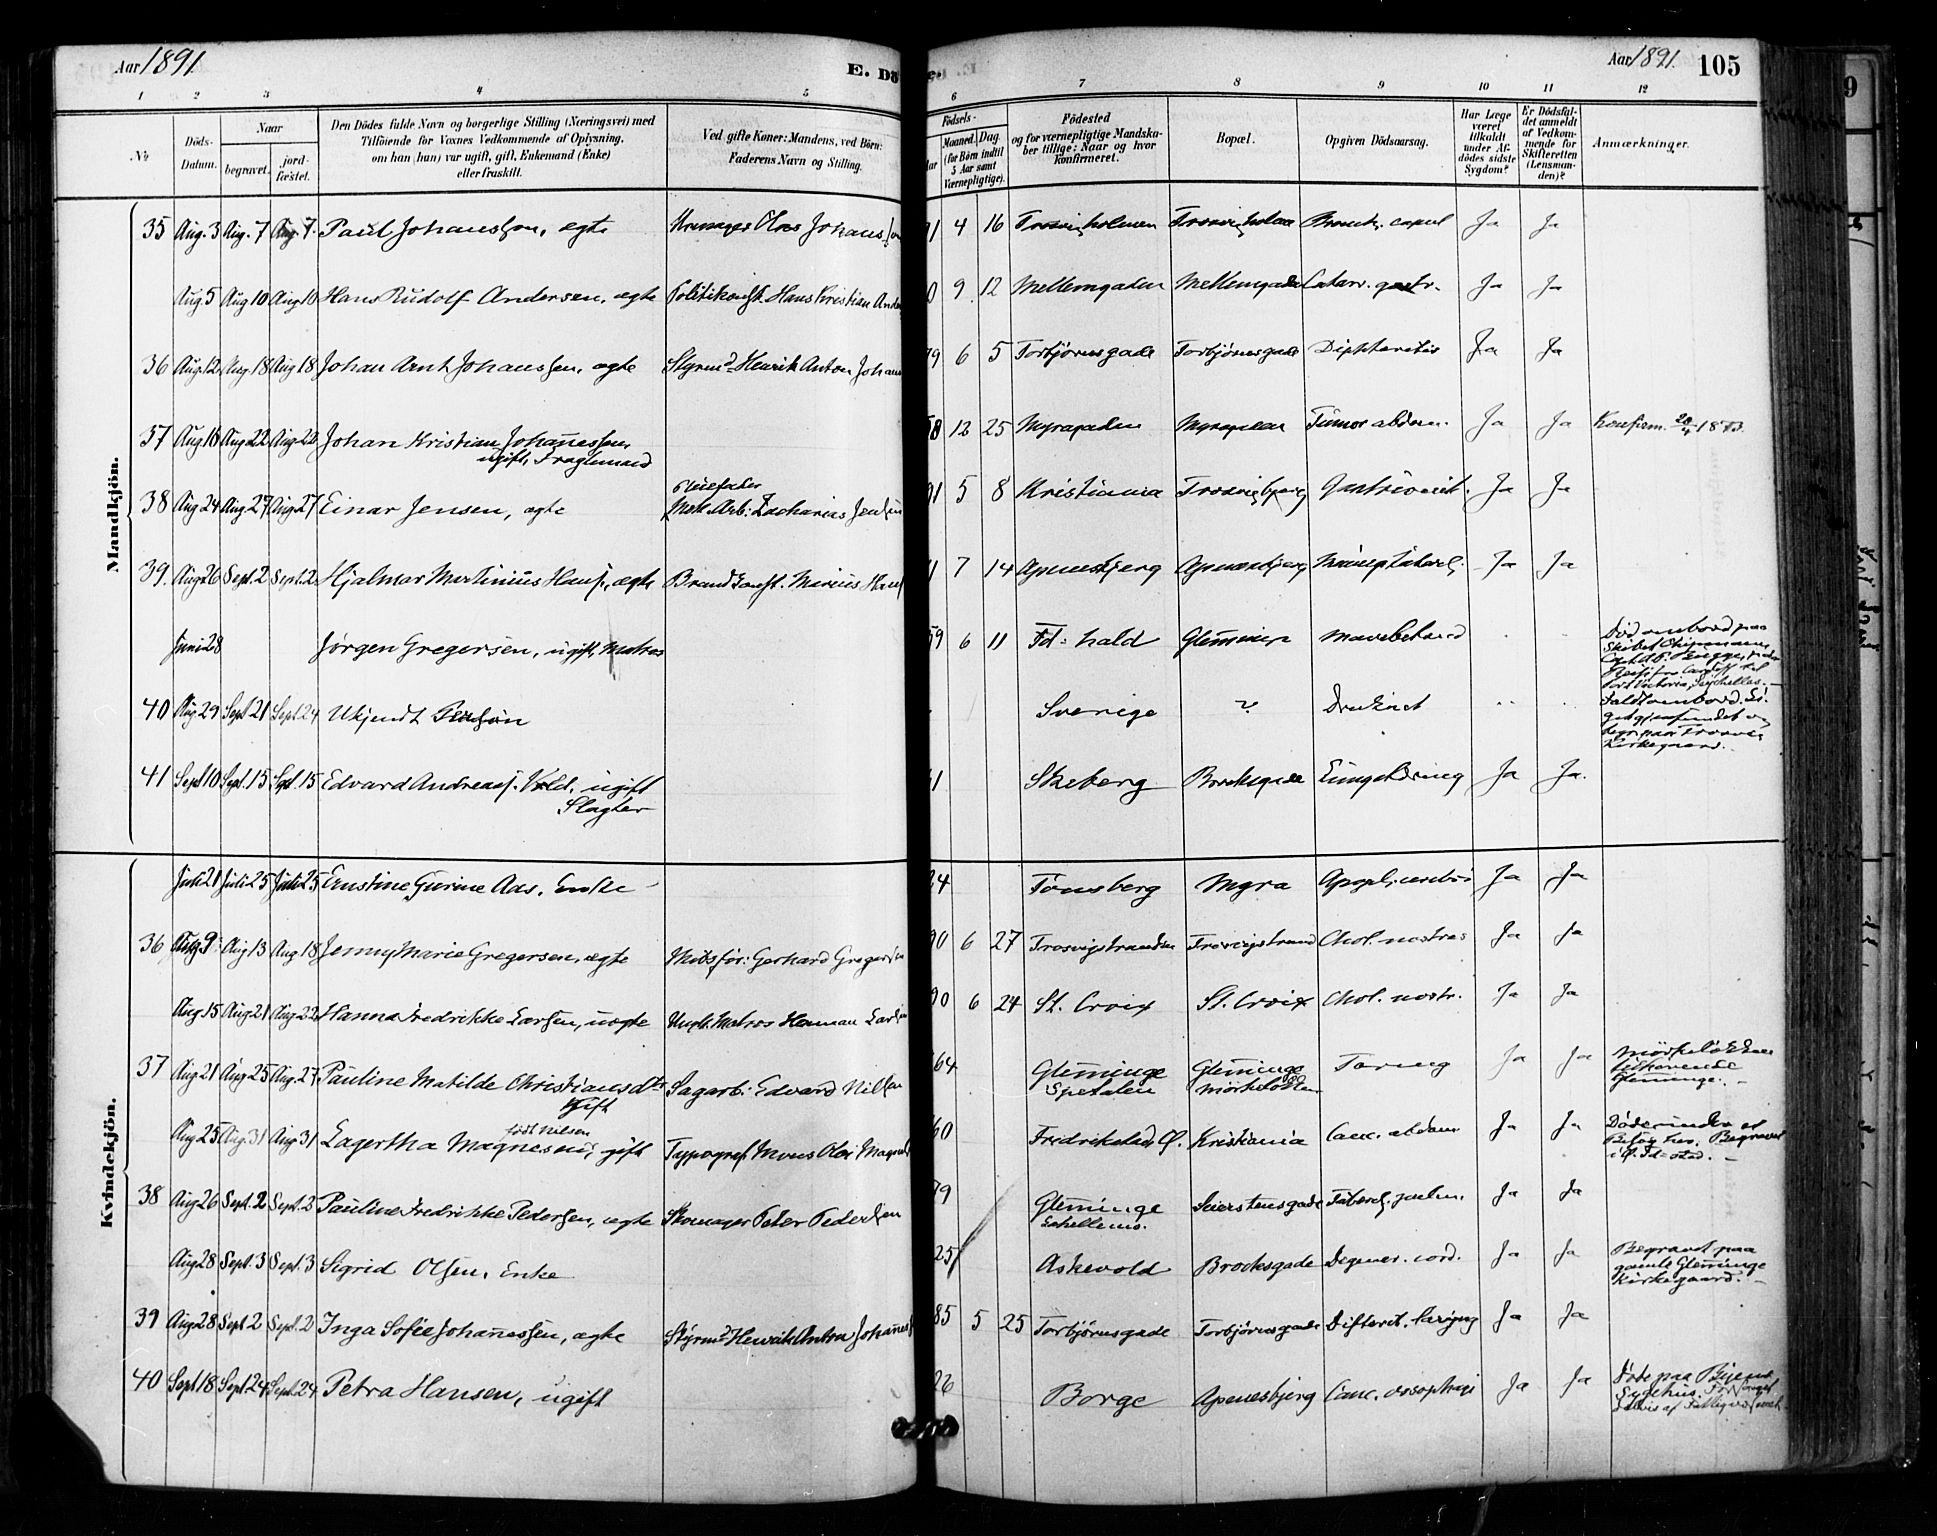 Aar 1891.
E. Dö
e.
Aar 1891.
105
1 2 3 4 5 6 7 8 9 10 11 12
No
Döds-Datum.
Naar
begravet.
jord-fæstet.
Den Dödes fulde Navn og borgerlige Stilling (Næringsvei) med
Tilföiende for Voxnes Vedkommende af Oplysning,
om han (hun) var ugift, gift, Enkemand (Enke)
eller fraskilt.
Ved gifte Koner: Mandens, ved Börn:
Faderens Navn og Stilling.
Födsels-
Aar
Maaned. Dag.
(for Börn indtil
5 Aar samt
Værnepligtige).
Födested
og for værnepligtige Mandska-
ber tillige: Naar og hvor
Konfirmeret.
Bopæl.
Opgiven Dödsaarsag.
Har Læge
været
tilkaldt
under Af-
dödes sidste
Sygdom?
Er Dödsfal-
det anmeldt
af Vedkom-
mende for
Skifteretten
(Lensman-
den)?
Anmærkninger.
Mandkjön.
35 Aug. 3 Aug. 7 Aug. 7. Paul Johanssen, ægte Johanssen 91 4 16 Trosvigholmen Trosvigholm Bronch. capil Ja Ja
Aug 5 Aug 10 Aug 10 Hans Rudolf Andersen, ægte Politikonst. Hans Kristian Ander 9 12 Mellemgaden Mellemgade Catarr. gastr. Ja Ja
36 Aug. 12 Aug. 18 Aug 18 Johan Arnt Johanssen, ægte Styrmd Henrik Anton Johan 79 6 5 Torbjörnsgade Torbjörnsgade Diphteritis Ja Ja
37 Aug 18 Aug 22 Aug. 22 Johan Kristian Johannessen
ugift, Fragtemand 58 12 25 Myragaden Myragaden Tumor abdom. Ja Ja Konfirm.
38 Aug 24 Aug 27 Aug. 27 Einar Jensen, ægte Pleiefader
Mek. Arb: Zacharias Jensen 91 5 8 Kristiania Trosvigbjerg Ja Ja
39. Aug 26 Sept. 2 Sept. 2 Hjalmar Martinius Hans., ægte Brandkonst. Marius Hans 7 14 Apenesbjerg Apenesbjerg Ja Ja
Juni 28 Jørgen Gregersen, ugift, Matros 59 6 11 Fd=hald Glemminge Mavebetænd Död ombord paa
Skibet
40 Aug. 29 Sept 21 Sept. 24 Ukjendt Person Sverige ? Druknet Faldt ombord. Li-
get gjenfundet og
begr. paa Trosvig
Kirkegaard.
41 Sept 10 Sept. 15 Sept. 15 Edvard Andreas. Vold, ugift
Slagter Skeberg Brochsgade Lungetæring Ja Ja.
Kvindekjön.
Juli 21 Juli 25 Juli 25 Ernstine Gurine Ads. Enke 24 Tönsberg Myra Apopl. cerebri Ja Ja
36 Aug 9 Aug 13 Aug. 18 Jenny Marie Gregersen, ægte Skibsför: Gerhard Gregersen 90 6 27 Trosvigstranden Trosvigstrand Chol. nostras Ja Ja
Aug. 15 Aug. 21 Aug. 22 Hanna Fredrikke Larsen, uægte Ungk. Matros Herman Larsen 90 6 24 St. Croix St. Croix Chol. nostr. Ja Ja
37 Aug. 21 Aug. 25 Aug. 27 Pauline Matilde Christiansdtr
Gift Sagarb: Edvard Nilsen 64 Glemminge
Spetalen Glemminge
Mörkelökken Tæring Ja Ja Mörkelökken
tilhörende
Glemminge.
Aug 25 Aug. 31 Aug. 31 Lagertha Magnesen, gift
födt Nilsen Typograf. Mons Olai Magnes 60 Fredrikstad Ø. Kristiania Canc. abdom Ja Ja Begravet
i Ø. Fd=stad.
38 Aug 26 Sept. 2 Sept. 2 Pauline Fredrikke Pedersen, ægte Skomager Peter Pedersen 79 Glemminge Seierstensgade Tuberc. pulm. Ja Ja
Aug 28 Sept. 3 Sept. 3 Sigrid Olsen, Enke 25 Askevold Brochsgade Degener. cord. Ja Ja Begravet paa
gamle Glemminge
Kirkegaard.
39 Aug 28 Sept 2 Sept. 2 Inga Sofie Johannessen, ægte Styrmd Henrik Anton Johannes 85 5 25 Torbjörnsgade Torbjörnsgade Difterit. laryng Ja Ja
40 Sept 18 Sept 24 Sept. 24 Petra Hansen, ugift 26 Borge Apenesbjerg Canc. oesophagi Ja Ja Döde paa Byens
Sygehus.